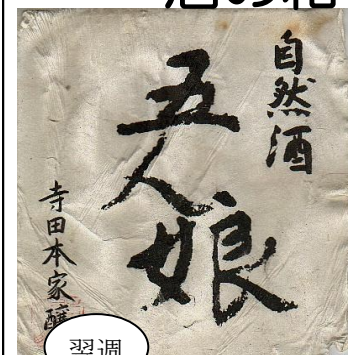 自然酒
五人娘
寺田本家醸
翌週